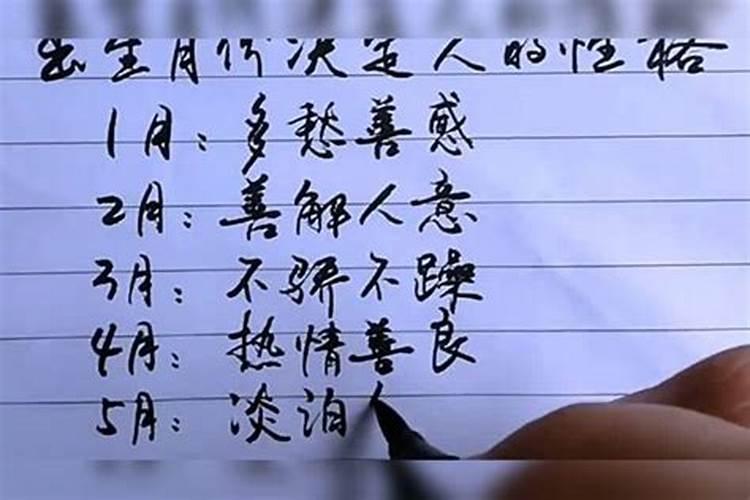 出生月份决定人的性格
1月：多愁善感
2月：善解人意
3月：不骄不躁
4月：热情善良
5月：淡泊